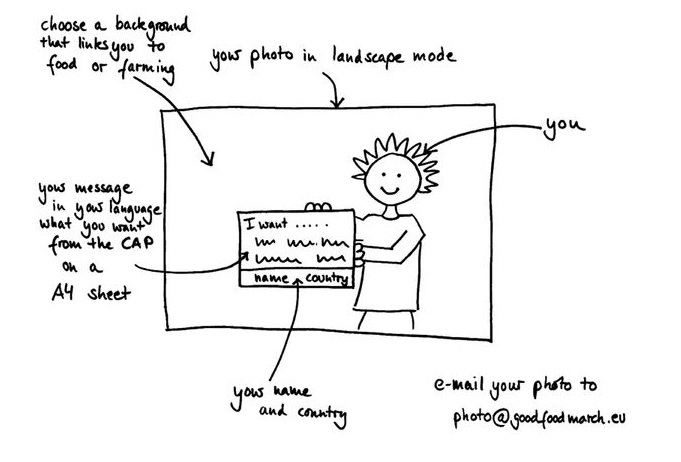 choose a background
that links you to
food or farming
your photo in landscape mode
you
your message
in your language
what you want
from the CAP
on a
A4 sheet
I want .....
name country
your name
and country
e-mail your photo to
photo@goodfoodmarch.eu